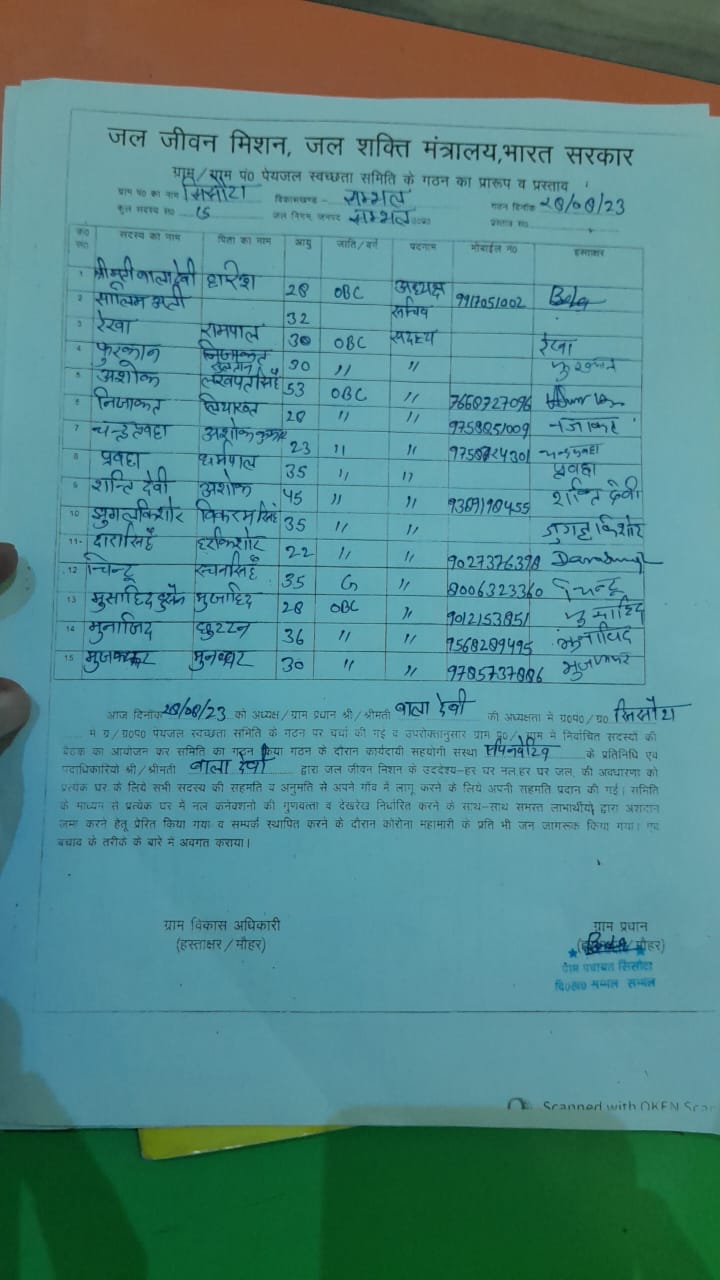 जल जीवन मिशन, जल शक्ति मंत्रालय,भारत सरकार
ग्राम/ग्राम पं0 पेयजल स्वच्छता समिति के गठन का प्रारूप व प्रस्ताव
ग्राम पं0 का नाम सिसौटा विकासखण्ड - सम्भल गठन दिनांक 28/08/23
कुल सदस्य स0 15 जल निगम, जनपद सम्भल उ0प्र0 प्रस्ताव स0
क्र0 स0 सदस्य का नाम पिता का नाम आयु जाति/वर्ग पदनाम मोबाईल न0 हस्ताक्षर
1 श्रीमती बाला देवी हरिश 28 OBC अध्यक्ष 9917051002 Bala
2 सालिम अली 32 सचिव
3 रेखा रामपाल 30 OBC सदस्य रेखा
4 फुरकान निजाकत 90 ,, ,, फुरकान
5 अशोक लखपतसिंह 53 OBC ,, 7668727096
6 निजाकत लियाखत 28 ,, ,, 9758851009 नजाकत
7 अशोक कुमार 23 ,, ,,
8 प्रवहा धर्मपाल 35 ,, ,, प्रवहा
9 शान्ति देवी अशोक 45 ,, ,, शान्ति देवी
10 जुगलकिशोर विकरम सिंह 35 ,, ,, जुगलकिशोर
11 दारासिंह हरकिशोर 22 ,, ,, 9027376398 Darasingh
12 चिन्टू रचनसिंह 35 G ,, 8006323360 चिन्टू
13 मुसाहिद मुजाहिद 28 OBC ,, 9012153851
14 मुनाजिद छुटटन 36 ,, ,, 9568289495 मुनाजिद
15 मुनव्वर 30 ,, ,, 9785737886
आज दिनांक 28/08/23 को अध्यक्ष/ग्राम प्रधान श्री/श्रीमती बाला देवी की अध्यक्षता में ग्र0प0/ग्र0 सिसौटा
में ग्र/ग्र0प0 पेयजल स्वच्छता समिति के गठन पर चर्चा की गई व उपरोक्तानुसार ग्राम पं0/ग्राम में निर्वाचित सदस्यों की
बैठक का आयोजन कर समिति का गठन किया गठन के दौरान कार्यदायी सहयोगी संस्था के प्रतिनिधि एवं
पदाधिकारियो श्री/श्रीमती बाला देवी द्वारा जल जीवन मिशन के उदददेश्य-हर घर नल,हर घर जल, की अवधारणा को
प्रत्येक घर के लिये सभी सदस्य की सहमति व अनुमति से अपने गाँव में लागू करने के लिये अपनी सहमति प्रदान की गई। समिति
के माध्यम से प्रत्येक घर में नल कनेक्शनो की गुणवत्ता व देखरेख निर्धारित करने के साथ-साथ समस्त लाभार्थीयो द्वारा अंशदान
जमा करने हेतू प्रेरित किया गया व सम्पर्क स्थापित करने के दौरान कोरोना महामारी के प्रति भी जन जागरूक किया गया। एवं
बचाव के तरीके के बारे में अवगत कराया।
ग्राम विकास अधिकारी ग्राम प्रधान
(हस्ताक्षर/मौहर) (हस्ताक्षर/मौहर)
Bala
ग्राम पंचायत सिसौटा
वि0ख0 सम्भल सम्भल
Scanned with OKEN Scanner